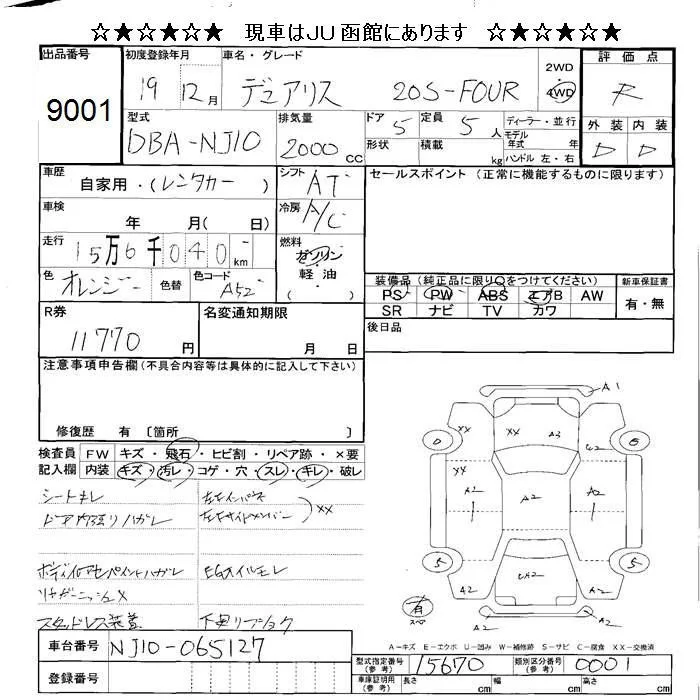 ☆★☆★☆★ 現車はJU函館にあります ☆★☆★☆★
出品番号 9001
初度登録年月 19 12月
車名・グレード デュアリス 20S-FOUR
2WD 4WD
評価点 R
外装 D 内装 D
型式 DBA-NJ10
排気量 2000 CC
ドア 5 定員 5 人
形状 積載 kg
ディーラー・並行
モデル年式 年
ハンドル 左・右
車歴 自家用・(レンタカー)
シフト AT
セールスポイント (正常に機能するものに限ります)
車検 年 月( 日)
冷房 A/C
走行 15万6千040 km
燃料 ガソリン・軽油・( )
色 オレンジ 色替 色コード A52
装備品 (純正品に限り○をつけてください)
PS PW ABS エアB AW
SR ナビ TV カワ
新車保証書 有・無
R券 11770 円
名変通知期限 月 日
後日品
注意事項申告欄 (不具合内容等は具体的に記入して下さい)
修復歴 有 〔箇所 〕
検査員記入欄
FW キズ・飛石・ヒビ割・リペア跡・×要
内装 キズ・汚レ・コゲ・穴・スレ・キレ・破レ
シートキレ
ドア内張りハガレ
左右インパネ
左右サイドメンバー XX
EGオイルモレ
スタッドレス装着
車台番号 NJ10-065127
登録番号
A1
XX A3
XX
A2 A2 A2
5 5
A2 A2
有 スペア
A2
A-キズ E-エクボ U-凹み W-補修跡 S-サビ C-腐食 XX-交換済
型式指定番号 (参考) 15670 類別区分番号 (参考) 0001
車庫証明用 (参考) 長さ cm 幅 cm 高さ cm